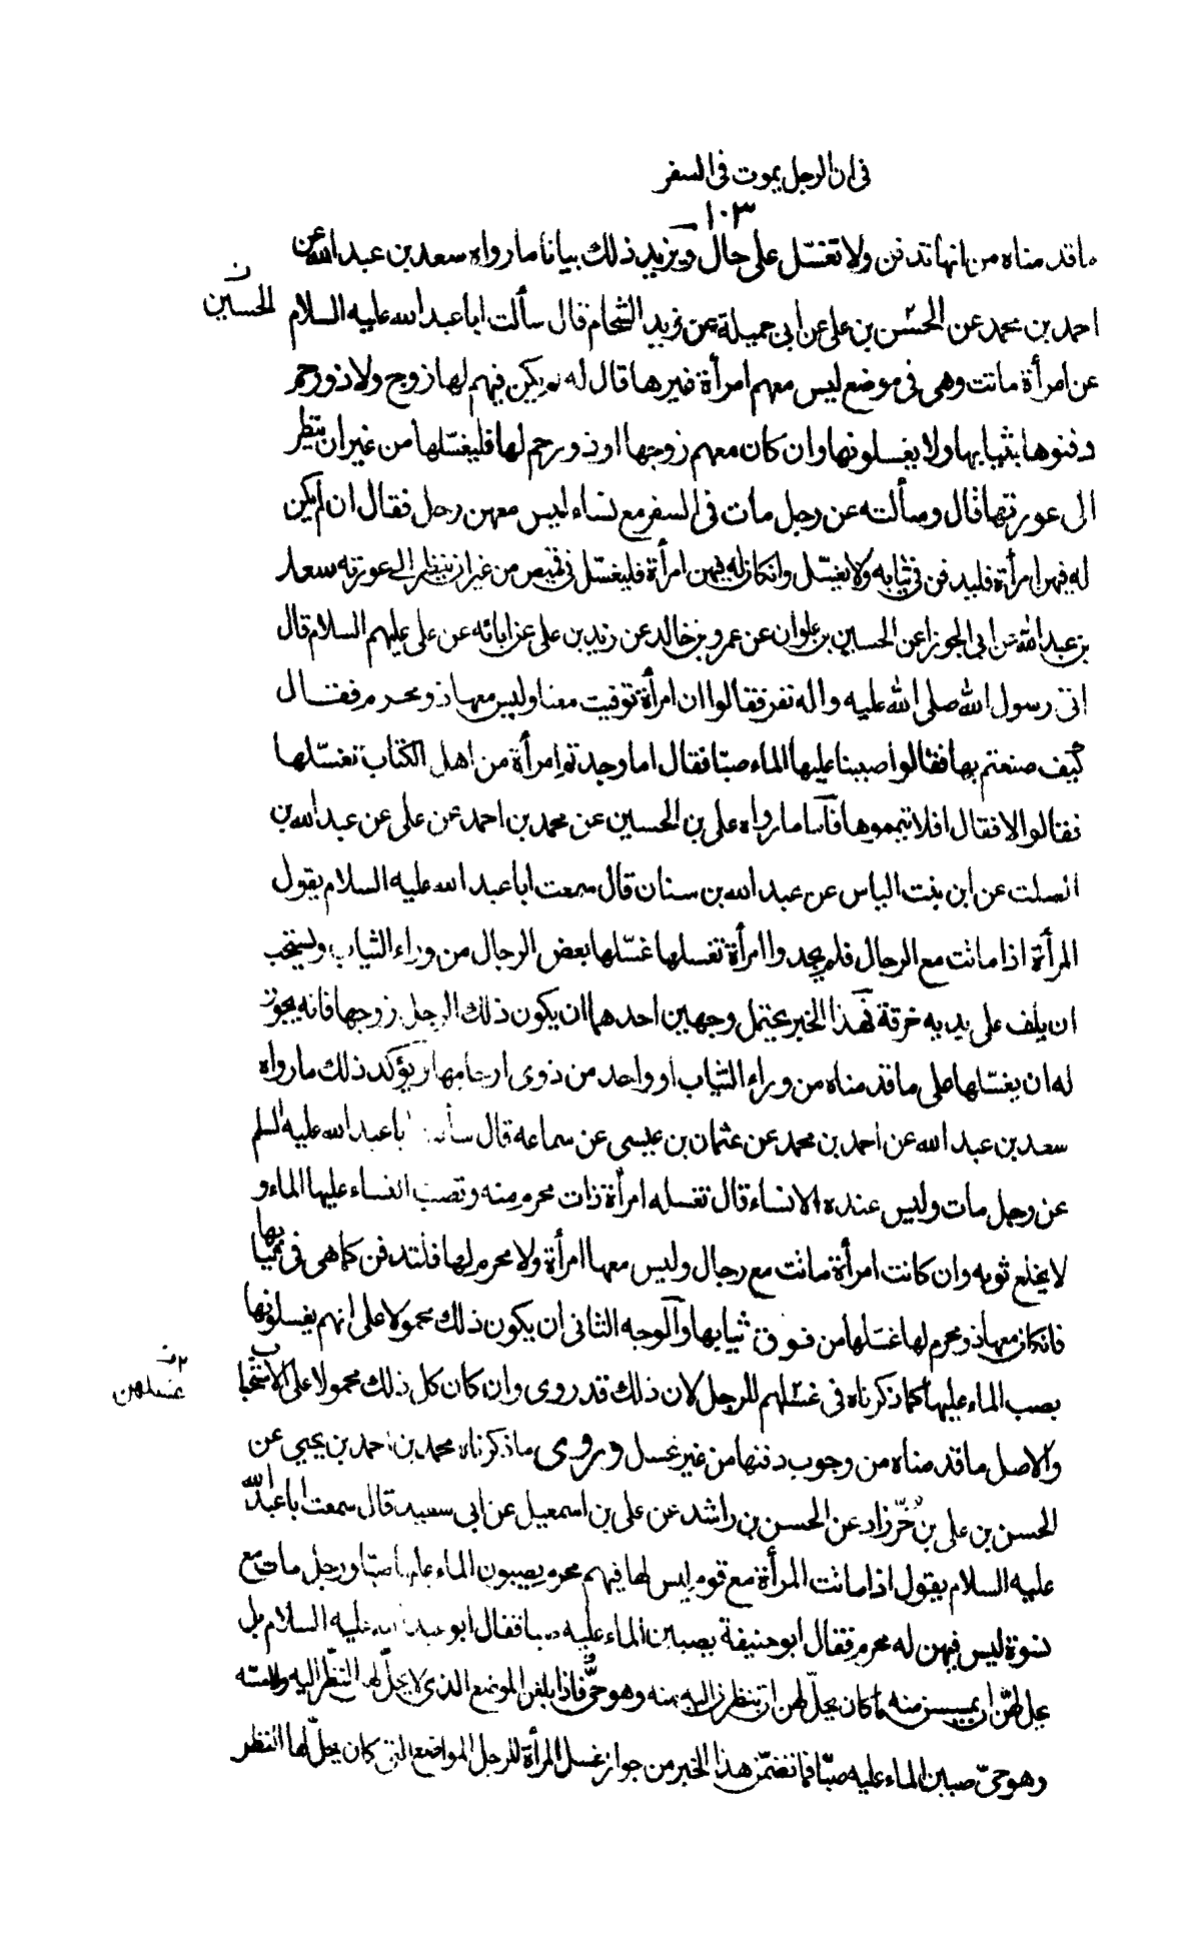 فى ان الرجل يموت فى السفر
١٠٣
ما قدمناه من انها تدفن ولا تغسّل على حال ويزيد ذلك بيانا ما رواه سعد بن عبد الله عن
ن
الحسين
احمد بن محمد عن الحسن بن على عن ابى جميلة عن زيد الشحام قال سألت ابا عبد الله عليه السلام
عن امرأة ماتت وهى فى موضع ليس معهم امرأة غيرها قال له لم يكن فيهم لها زوج ولا ذو رحم
دفنوها بثيابها ولا يغسلونها وان كان معهم زوجها او ذو رحم لها فليغسّلها من غير ان ينظر
الى عورتها قال وسألته عن رجل مات فى السفر مع نساء ليس معهن رجل فقال ان لم يكن
له فيهن امرأة فليدفن فى ثيابه ولا يغسّل وانكان له فيهن امرأة فليغسّل فى قميص من غير ان ينظر الى عورته سعد
بن عبد الله عن ابى الجوزا عن الحسين بن علوان عن عمرو بن خالد عن زيد بن على عن ابائه عن على عليهم السلام قال
اتى رسول الله صلى الله عليه واله نفر فقالوا ان امرأة توفيت معنا وليس معها ذو محرم فقال
كيف صنعتم بها فقالوا صببنا عليها الماء صبّا فقال اما وجدتم امرأة من اهل الكتاب تغسّلها
فقالوا لا فقال افلا تيمموها فأما ما رواه على بن الحسين عن محمد بن احمد عن على عن عبد الله بن
الصلت عن ابن بنت الياس عن عبد الله بن سنان قال سمعت ابا عبد الله عليه السلام يقول
المرأة اذا ماتت مع الرجال فلم يجدوا امرأة تغسلها غسّلها بعض الرجال من وراء الثياب ويستحب
ان يلف على يديه خرقة فهذا الخبر يحتمل وجهين احدهما ان يكون ذلك الرجل زوجها فانه يجوز
له ان يغسّلها على ما قدمناه من وراء الثياب او واحد من ذوى ارحامها ويؤكد ذلك ما رواه
سعد بن عبد الله عن احمد بن محمد عن عثمان بن عيسى عن سماعه قال سألت ابا عبد الله عليه السلم
عن رجل مات وليس عنده الا نساء قال تغسله امرأة ذات محرم منه وتصب النساء عليها الماء و
لا يخلع ثوبه وان كانت امرأة ماتت مع رجال وليس معها امرأة ولا محرم لها فلتدفن كما هى فى ثيابها
فانكان معها ذو محرم لها غسّلها من فوق ثيابها والوجه الثانى ان يكون ذلك محمولا على انهم يغسلونها
بصب الماء عليها كما ذكرناه فى غسّلهم للرجل لان ذلك قد روى وان كان كل ذلك محمولا على الاستحباب
غسلهن
والاصل ما قدمناه من وجوب دفنها من غير غسل وروى ما ذكرناه محمد بن احمد بن يحيى عن
الحسن بن على بن خرّزاد عن الحسن بن راشد عن على بن اسمعيل عن ابى سعيد قال سمعت ابا عبد الله
عليه السلام يقول اذا ماتت المرأة مع قوم ليس لها فيهم محرم يصبون الماء عليها صبّا ورجل مات مع
نسوة ليس فيهن له محرم فقال ابو حنيفة يصببن الماء عليه صبا فقال ابو عبد الله عليه السلام بل
يحل لهنّ ان يمسسن منه ما كان يحلّ لهن ان ينظرن اليه منه وهو حىّ فاذا بلغن الموضع الذى لا يحلّ لهن النظر اليه ولا مسّه
وهو حىّ صببن الماء عليه صبّا فما تضمّن هذا الخبر من جواز غسل المرأة للرجل المواضع التى كان يحلّ لها النظر